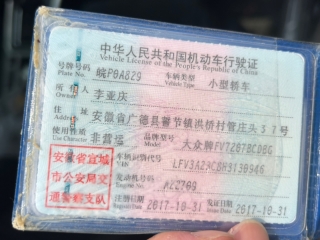 中华人民共和国机动车行驶证
Vehicle License of the People's Republic of China
号牌号码 皖P0A829 车辆类型 小型轿车
Plate No. Vehicle Type
所有人 李亚庆
Owner
住址 安徽省广德县誓节镇洪桥村管庄头57号
Address
使用性质 非营运 品牌型号 大众牌FV7207BCDBG
Use Character Model
安徽省宣城
市公安局交
通警察支队
车辆识别代号
VIN
发动机号码
Engine No.
注册日期 2017-10-31 发证日期 2017-10-31
Register Date Issue Date